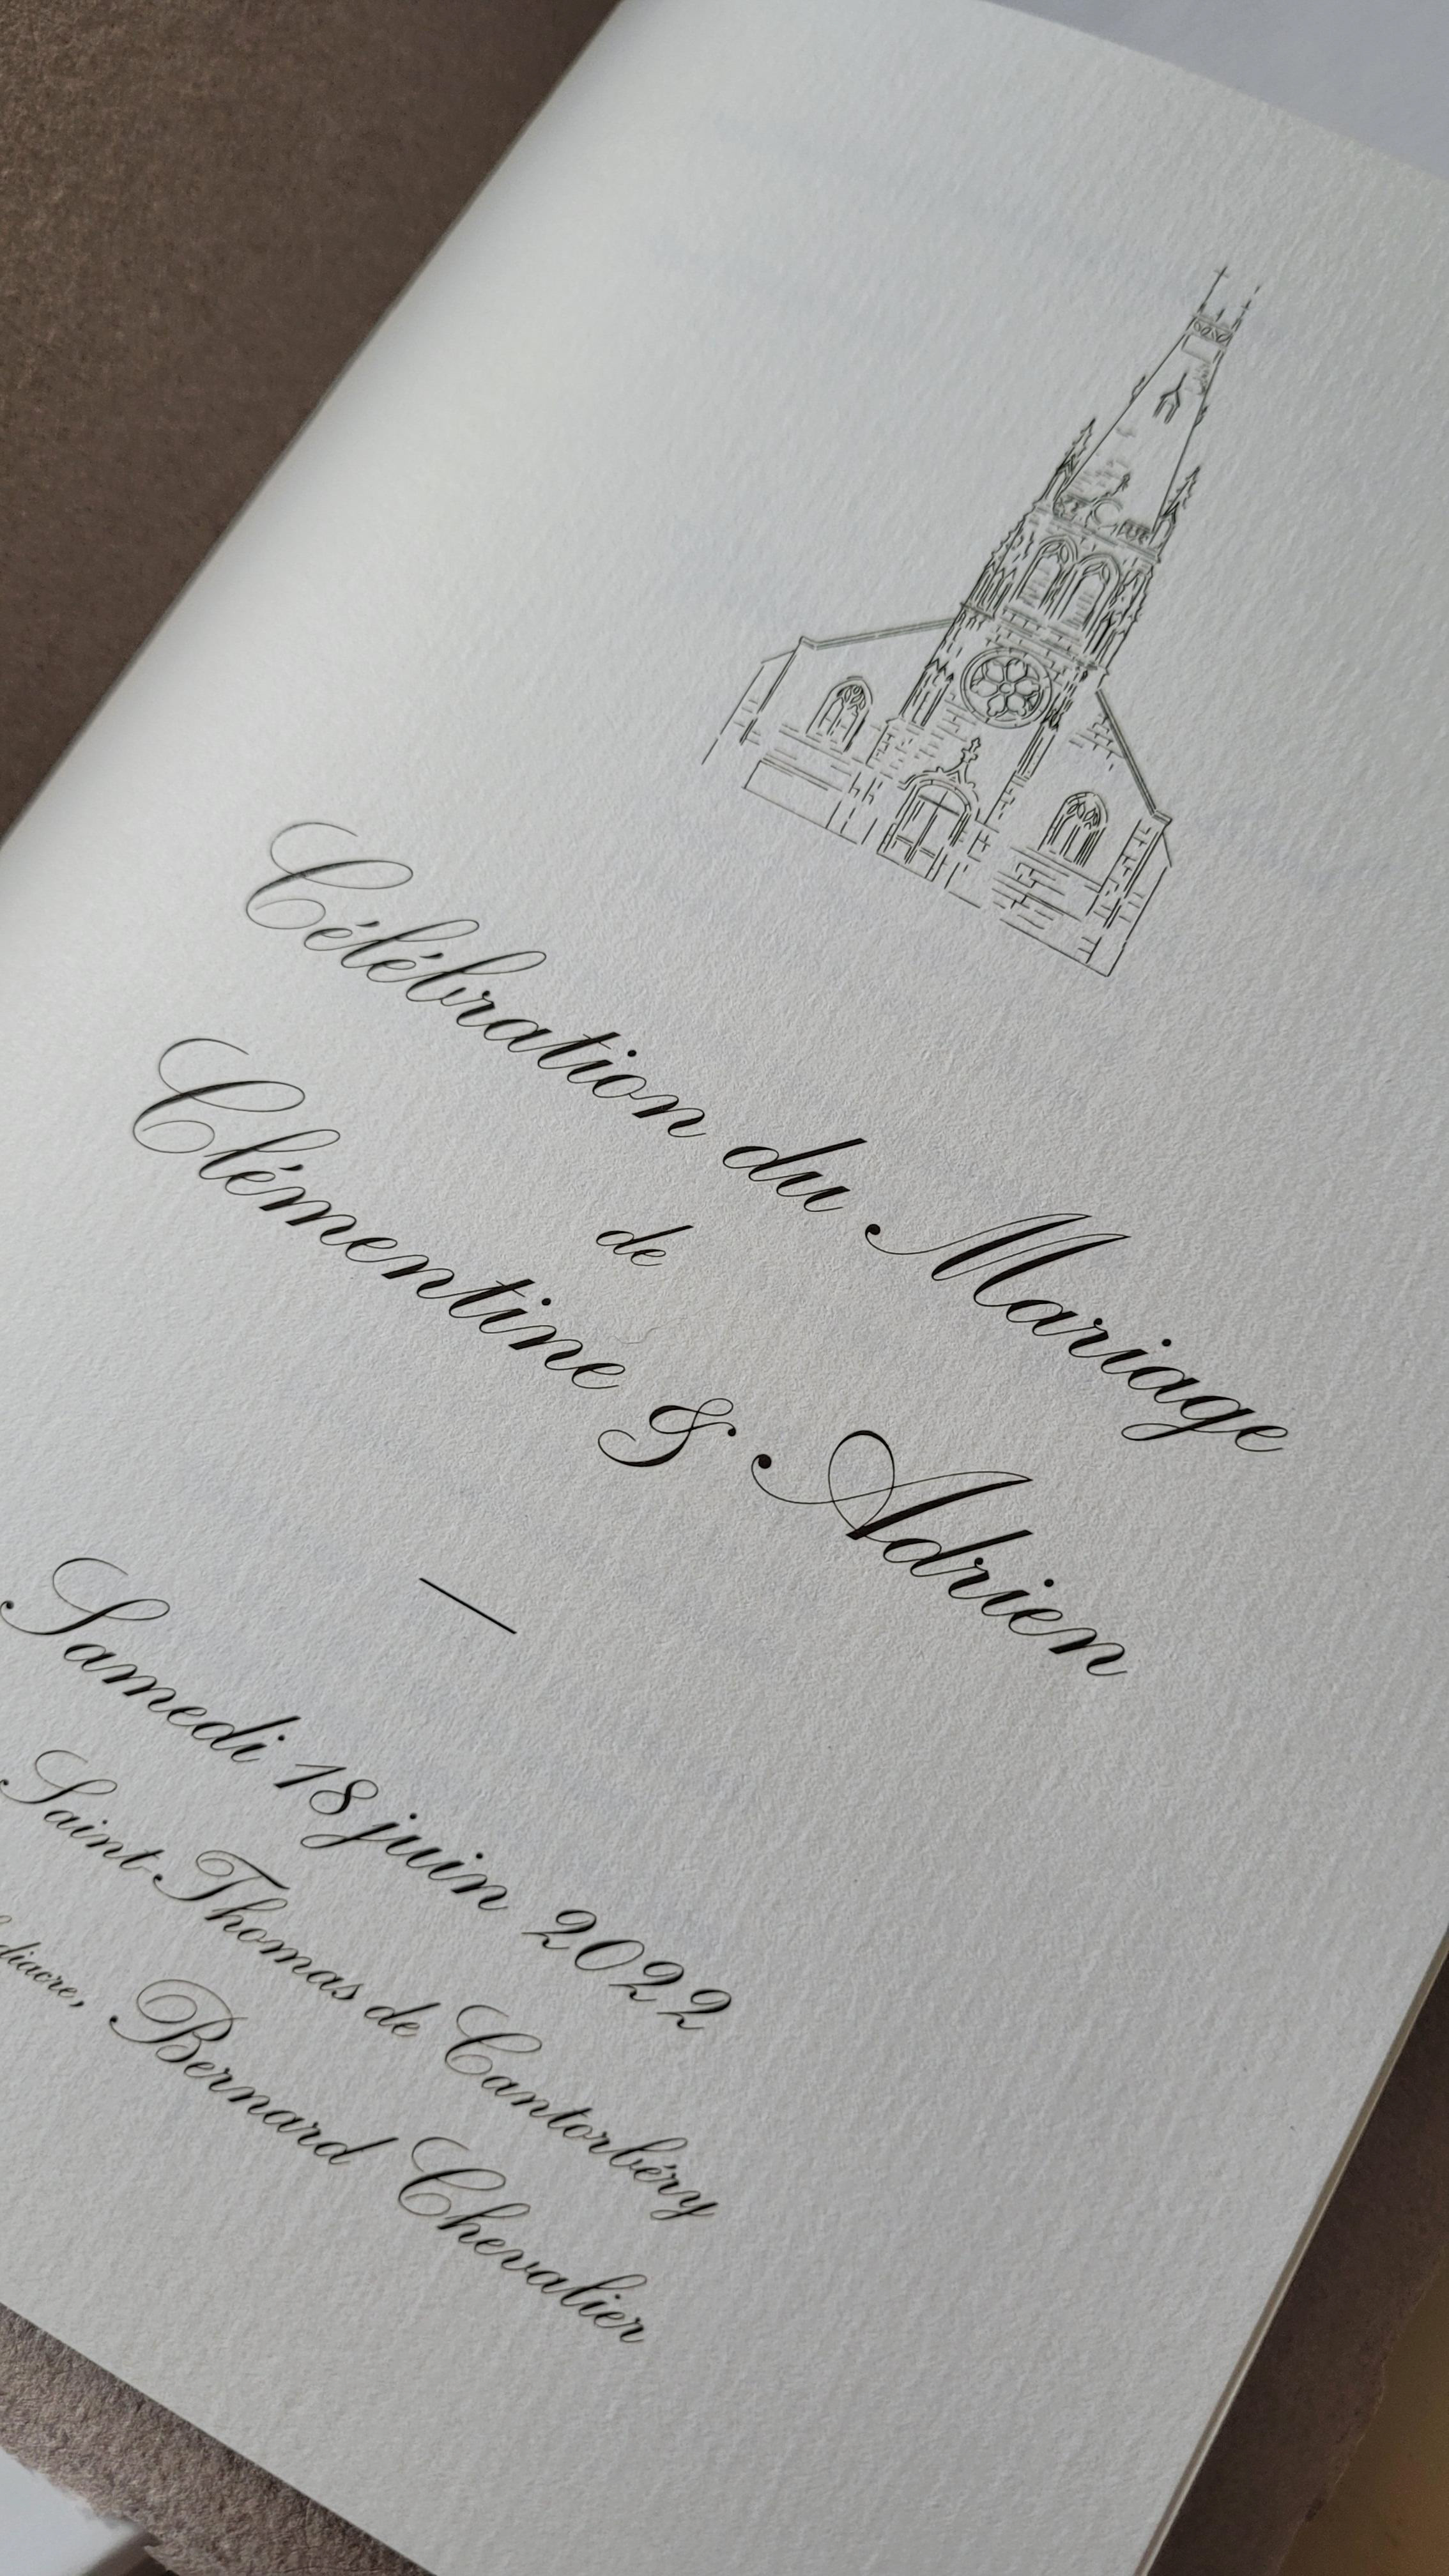 Célébration du Mariage
de
Clémentine & Adrien
Samedi 18 juin 2022
Saint Thomas de Cantorbéry
diacre, Bernard Chevalier